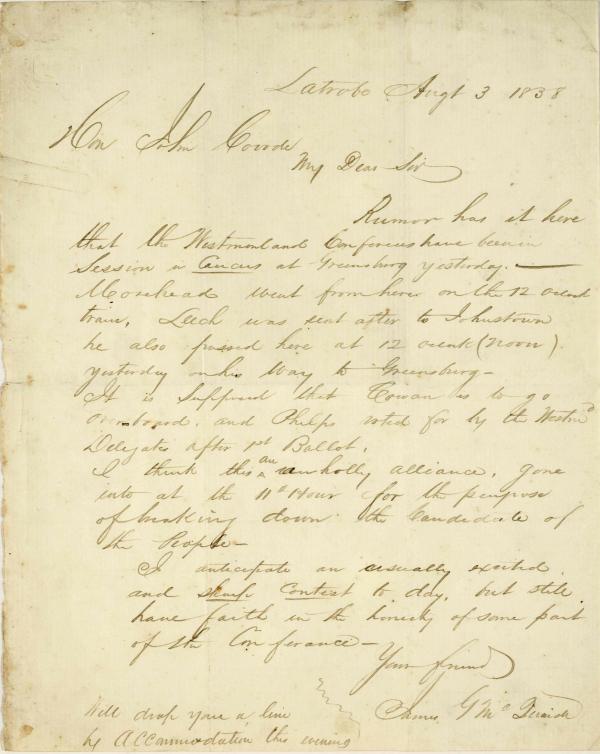 Latrobe Augt 3 1858
Hon John Covode
My Dear Sir
Rumor has it here
that the Westmorland Conferees have been in
Session in Caucus at Greensburg yesterday.
Morehead went from here on the 12 oclock
train, Leech was sent after to Johnstown
he also passed here at 12 oclock (noon)
yesterday on his way to Greensburg -
It is Supposed that Cowan is to go
overboard, and Phelps voted for by the Westmd
Delegates after 1st Ballot.
I think this an unholly alliance, gone
into at the 11th Hour for the purpose
of breaking down the Candidate of
the People -
I anticipate an usually excited
and sharp Contest to day, but still
have faith in the honesty of some part
of the Conferance -
Your friend
James G Mc
Will drop you a line
by Accommodation this evening